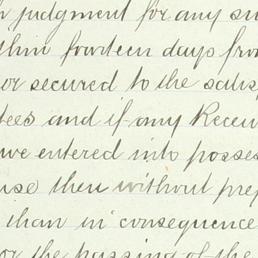 judgment for any su
thin fourteen days from
or secured to the satis
tees and if any Receiv
ve entered into posses
use then without prej
than in consequence
or the passing of the